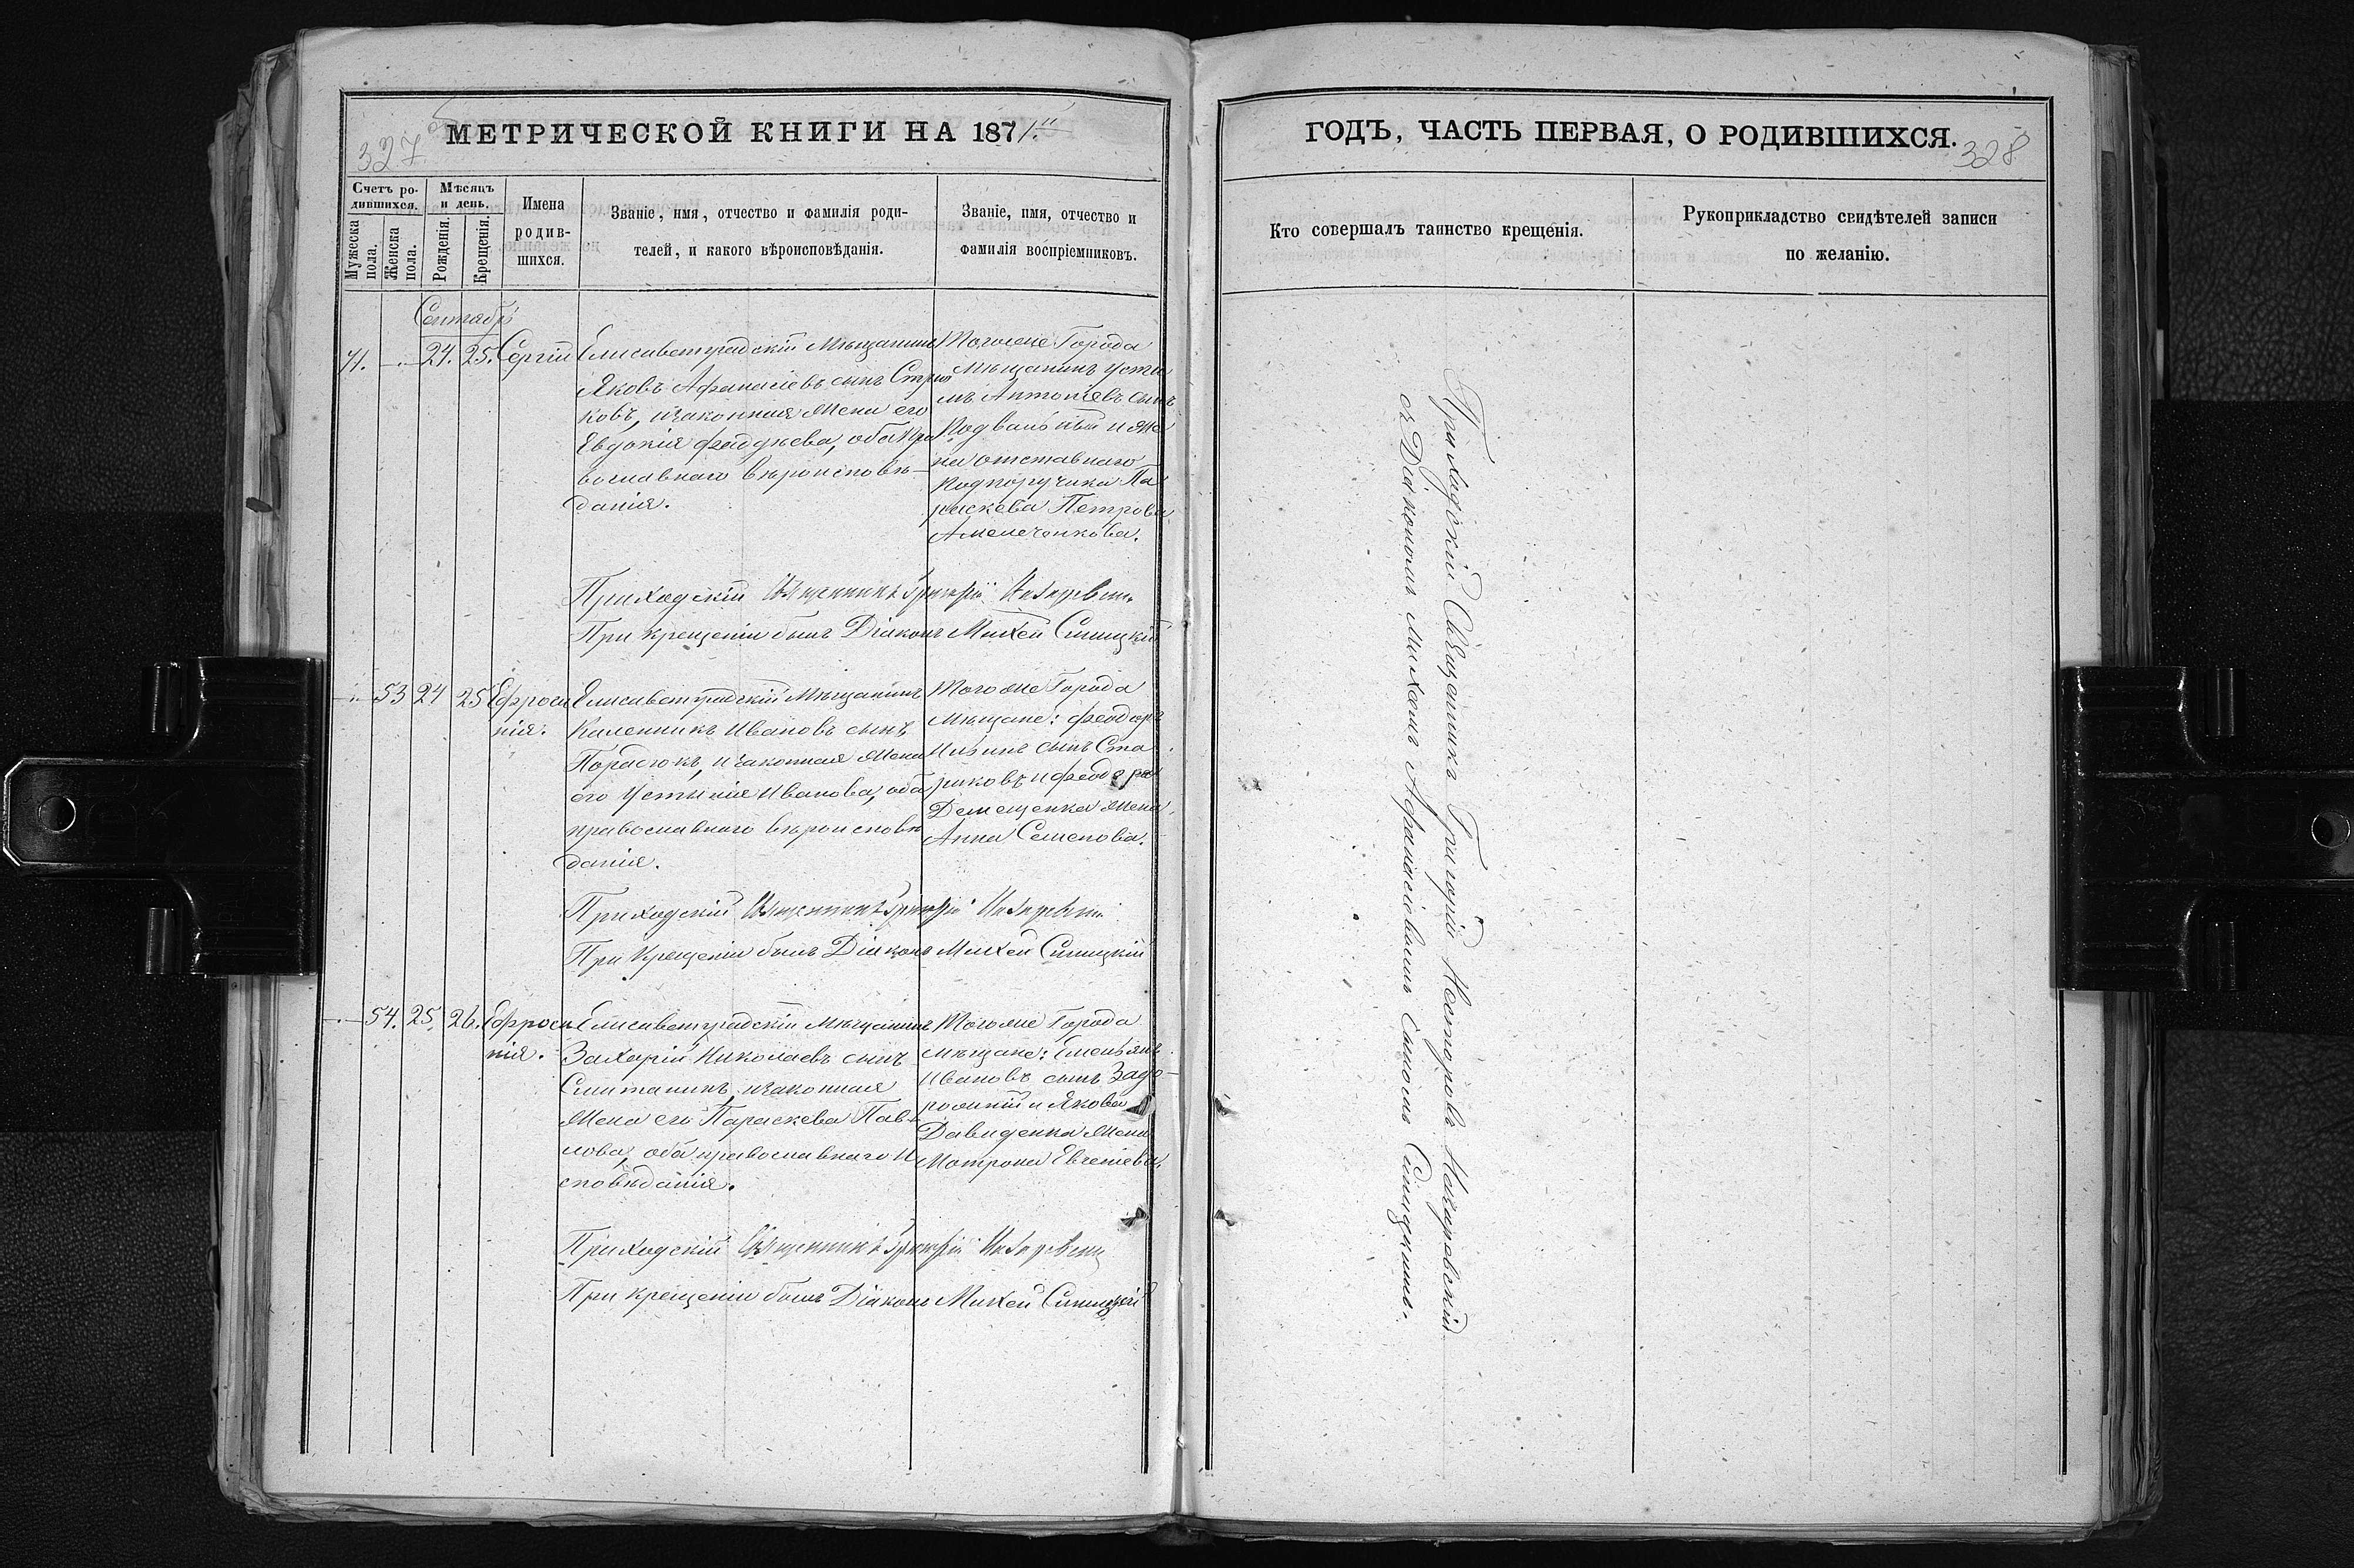 327 об
МЕТРИЧЕСКОЙ КНИГИ НА 1871.й
Счетъ родившихся.
Мужеска пола.
Женска пола.
Мѣсяцъ и день.
Рожденія.
Крещенія.
Имена родившихся.
Званіе, имя, отчество и фамилія роди-
телей, и какого вѣроисповѣданія.
Званіе, имя, отчество и
фамилія воспріемниковъ.
Сентябрь
71. — 24. 25. Сергій
Елисаветградскій Мѣщанинъ
Яковъ Афанасіевъ сынъ
ковъ, и законная жена его
Евдокія Фаддѣева, оба пра
вославнаго вѣроисповѣ-
данія.
Тогоже Города
Мѣщанинъ Усти
мъ Антоніевъ сынъ
Подвальный и же
на отставнаго
подпоручика Па
раскева Петрова
Приходскій Священникъ Григорій Назаревскій
При крещеніи былъ Діаконъ Михей Синицкій
— 53 24 25 Ефроси
нія.
Елисаветградскій Мѣщанинъ
Каленникъ Ивановъ сынъ
Парасюкъ, и законная жена
его Устинія Иванова, оба
православнаго вѣроисповѣ
данія.
Тогоже Города
Мѣщане: Феодоръ
сынъ Ста
риковъ и Феодора
Демещенка жена
Анна Семенова.
Приходскій Священникъ Григорій Назаревскій
При Крещеніи былъ Діаконъ Михей Синицкій
— 54. 25. 26. Ефроси
нія.
Елисаветградскій Мѣщанинъ
Захарій Николаевъ сынъ
и законная
жена его Параскева Пав-
лова, оба православнаго и
сповѣданія.
Тогоже Города
Мѣщане: Емельянъ
Ивановъ сынъ Задо-
рожній и Якова
Давиденка жена
Матрона Евгеніева.
Приходскій Священникъ Григорій Назаревскій
При крещеніи былъ Діаконъ Михей Синицкій
ГОДЪ, ЧАСТЬ ПЕРВАЯ, О РОДИВШИХСЯ.
328
Кто совершалъ таинство крещенія.
Рукоприкладство свидѣтелей записи
по желанію.
Приходскій Священникъ Григорій Несторовъ Назаревскій
съ Діакономъ Михеемъ Афанасіевымъ сыномъ Синицкимъ.